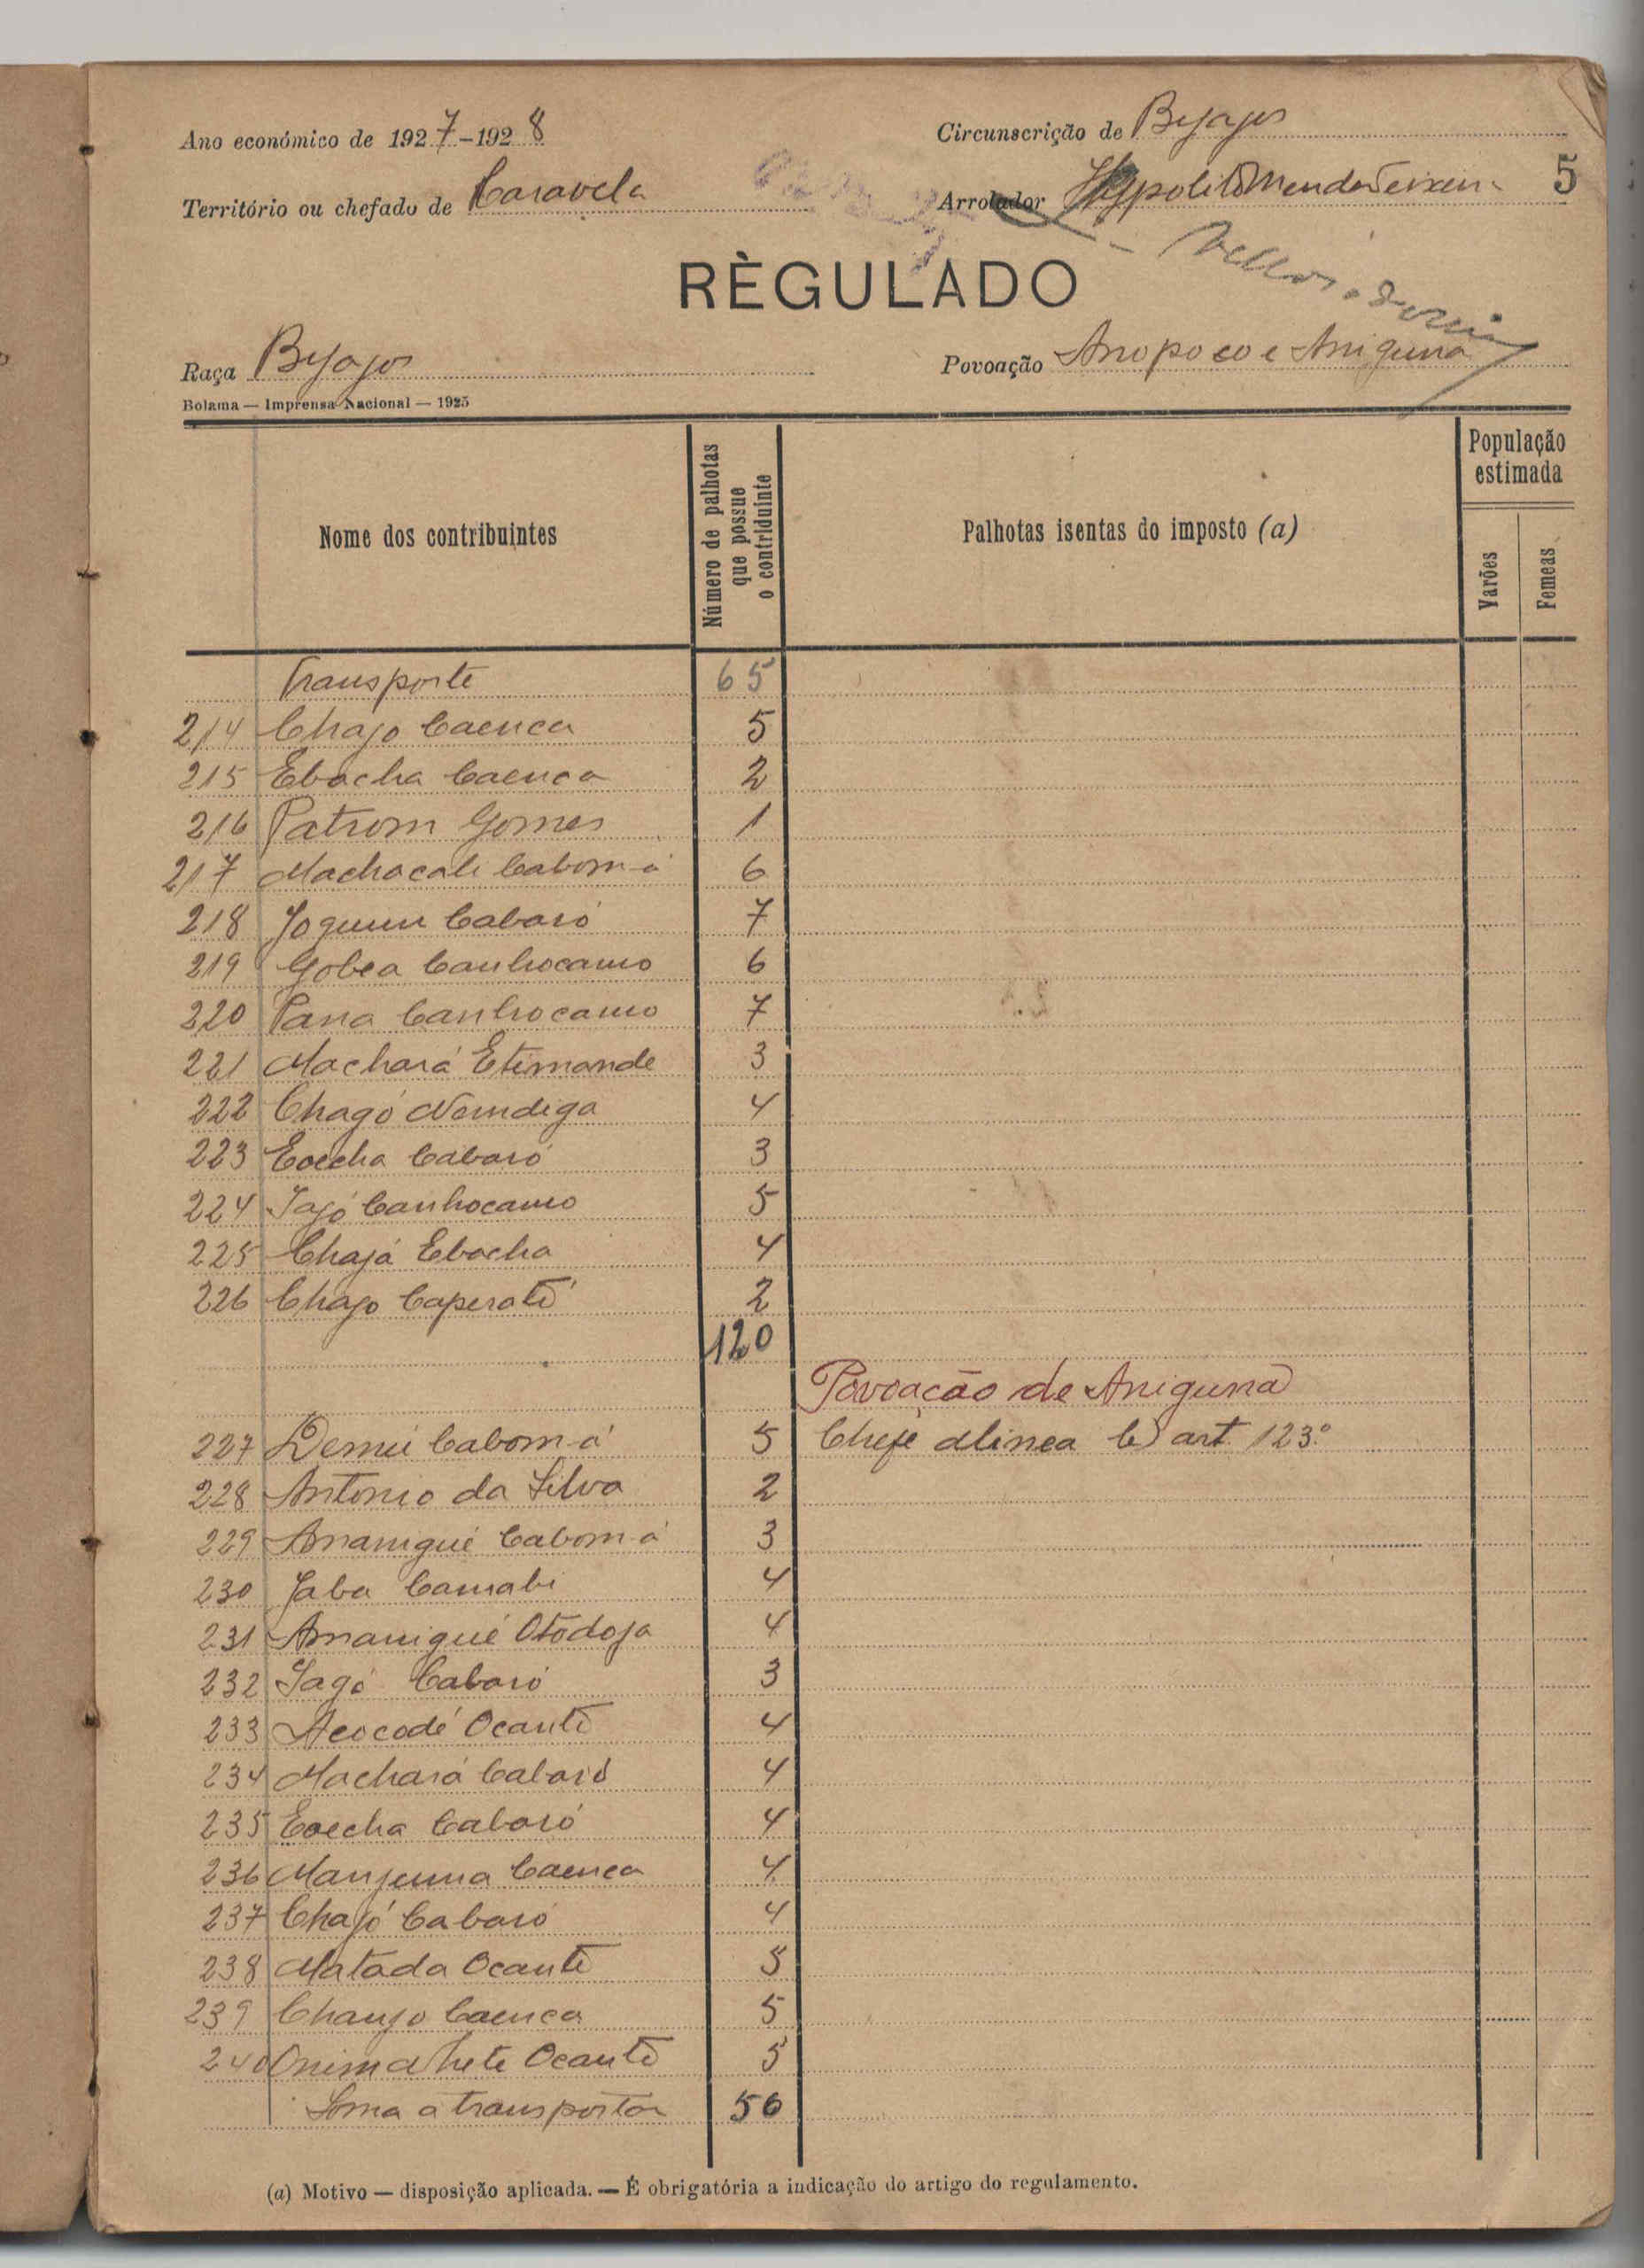 Ano económico de 1927-1928
Circunscrição de Byajos
Território ou chefado de Caravela
Arrolador Hyppolito Mendes Teixeira
5
RÈGULADO
Raça Byajos
Povoação Anopoco e Aniguna
Bolama — Imprensa Nacional — 1925
Nome dos contribuintes
Número de palhotas que possue o contriduinte
Palhotas isentas do imposto (a)
População estimada
Varões
Femeas
Transporte 65
214 Chajo Caenca 5
215 Ebocha Caenca 2
216 Patrom Gomes 1
217 Machacali Cabom-á 6
218 Joquim Cabaró 7
219 Gobea Canhocamo 6
220 Pana Canhocamo 7
221 Machará Etimande 3
222 Chagó Nomdiga 4
223 Eoecha Cabaró 3
224 Jajó Canhocamo 5
225 Chajá Ebocha 4
226 Chajo Caperatê 2
120
Povoação de Aniguna
227 Demú Cabom-á 5 Chefe alinea b) art. 123.º
228 Antonio da Silva 2
229 Ananigué Cabom-á 3
230 Jaba Camabi 4
231 Amanigué Otodoja 4
232 Jagó Cabaró 3
233 Acocodé Ocantê 4
234 Machará Cabaró 4
235 Eoecha Cabaró 4
236 Manjuma Caenca 4
237 Chajó Cabaró 4
238 Matada Ocantê 5
239 Chanjo Caenca 5
240 Onimahete Ocantê 5
Soma a transportar 56
(a) Motivo — disposição aplicada. — É obrigatória a indicação do artigo do regulamento.